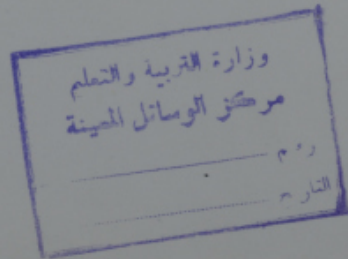 وزارة التربية والتعليم
مركز الوسائل المعينة
رقم
التاريخ